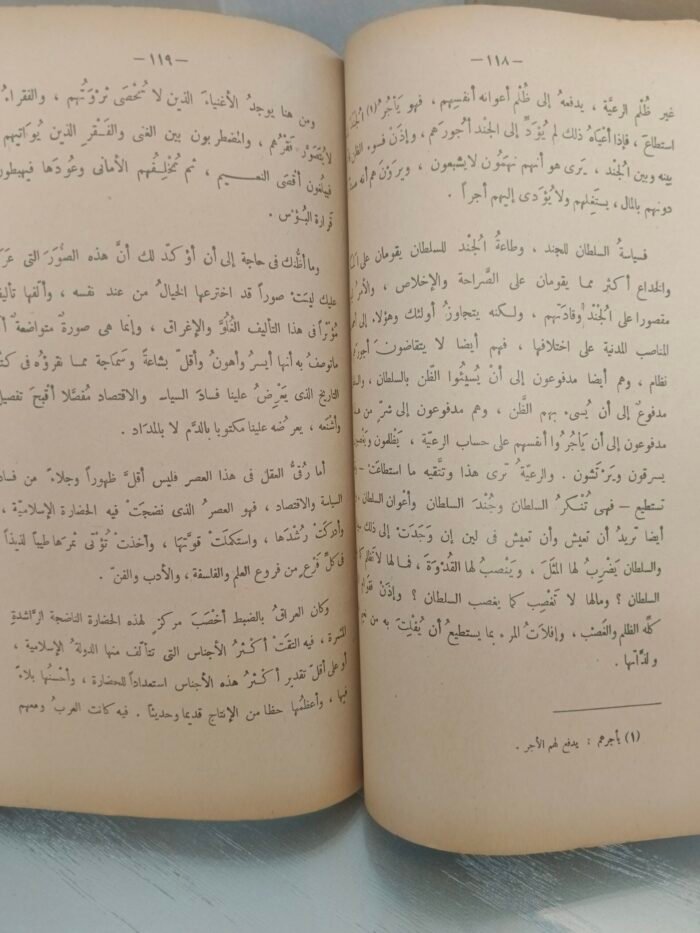 — ١١٨ —
غير ظُلم الرعيَّة ، يدفعهُ إلى ظُلْم أعوانه أنفسِهم ، فهو يَأْجُرُ (١)
استطاعَ ، فإذا أعْيَاهُ ذلك لم يُؤَدِّ إلى الجُنْد أُجُورَهم ، وإذَنْ
بينه وبين الجُنْد ، يَرى هو أنهم نَهِمُون لايشبعون ، ويرَوْنَ هم أنه
دونهم بالمال ، يستَغِلهم ولا يُؤدى إليهم أجراً .
فسياسةُ السلطان للجند ، وطاعةُ الجُنْد للسلطان يقومان على
والخداع أكثر مما يقومان على الصَّراحة والإخلاص ، والأمرُ
مقصورا على الجُنْد وقادَتِهم ، ولكنه يتجاوزُ أولئك وهؤلاء إلى
المناصب المدنية على اختلافها ، فهم أيضا لا يتقاضون
نظام ، وهم أيضا مدفوعون إلى أنْ يُسيئُوا الظّن بالسلطان ،
مدفوعٌ إلى أن يُسىء بهم الظَّن ، وهم مدفوعون إلى شرٍّ من
مدفوعون إلى أن يَأجُروا أنفسهم على حساب الرعيّة ، يَظْلمون
يسرقون ويَرْتَشون . والرعيّةُ ترى هذا وتتَّقيه ما استطاعَت
تستطيع — فهى تُنْكرُ السلطان وجُنْدَ السلطان وأعوان السلطان ،
أيضا تريدُ أن تعيش وأن تعيش فى لين إن وَجَدَتْ إلى ذلك
والسلطان يَضْرِبُ لها المَثَلَ ، ويَنْصبُ لها القُدْوَةَ ، فمالها لا
السلطان ؟ ومالها لا تَغْصِب كما يغصب السلطان ؟ وإذَنْ
كلّه الظلم والغَصْب ، وإفلاتُ المرء بما يستطيعُ أن يُفْلِتَ به من
ولذّاتها .
(١) يأجرهم : يدفع لهم الأجر .
— ١١٩ —
ومن هنا يوجدُ الأغنياءُ الذين لا تُحْصَى ثَرْوَتُهم ، والفقراءُ
لايُتَصَوَّر فَقْرُهم ، والمضطربون بين الغنى والفَقْر الذين يُوَاتيهم
فيبلُغون أَقْصَى النعيم ، ثم تُخْلِفُهم الأمانى وعُودَها فيهبطون
قرارة البُؤْس .
وما أظنُّك فى حاجة إلى أن أؤكدَ لك أنَّ هذه الصُّوَرَ التى
عليك ليْسَتْ صوراً قد اخترعها الخيالُ من عند نفسه ، وألَّفها
مُؤْثراً فى هذا التأليف الغُلُوَّ والإغراق ، وإنما هى صورةٌ متواضعةٌ
ماتوصفُ به أنها أيسَرُ وأهونُ وأقلّ بشاعةً وسَمَاجة مما نقرؤه فى
التاريخ الذى يَعْرِضُ علينا فسادَ السياسة والاقتصاد مُفَصَّلا أقبحَ تفصيل
وأشنَعَه ، يعرضُه علينا مكتوبا بالدَّم لا بالمِدَاد .
أما رُقىُّ العقل فى هذا العصر فليس أقلَّ ظهوراً وجلاءً من فساد
السياسة والاقتصاد ، فهو العصرُ الذى نضجَتْ فيه الحضارة الإسلاميّة ،
وأدركَتْ رُشْدَها ، واستكملَتْ قوَّتها ، وأخذَتْ تُؤْتى ثمرَها طيباً لذيذاً
فى كلّ فَرْعٍ من فروع العلم والفلسفة ، والأدب والفنّ .
وكان العراقُ بالضبط أخْصَبَ مركزٍ لهذه الحضارة الناضجة الرَّاشدةِ
المُثمرة ، فيه التقَتْ أكثرُ الأجناس التى تتألّف منها الدولةُ الإسلامية ،
أو على أقلّ تقدير أكثرُ هذه الأجناس استعداداً للحضارة ، وأحْسنُها بلاءً
فيها ، وأعظمُها حظا من الإنتاج قديما وحديثا . فيه كانت العربُ ومعهم